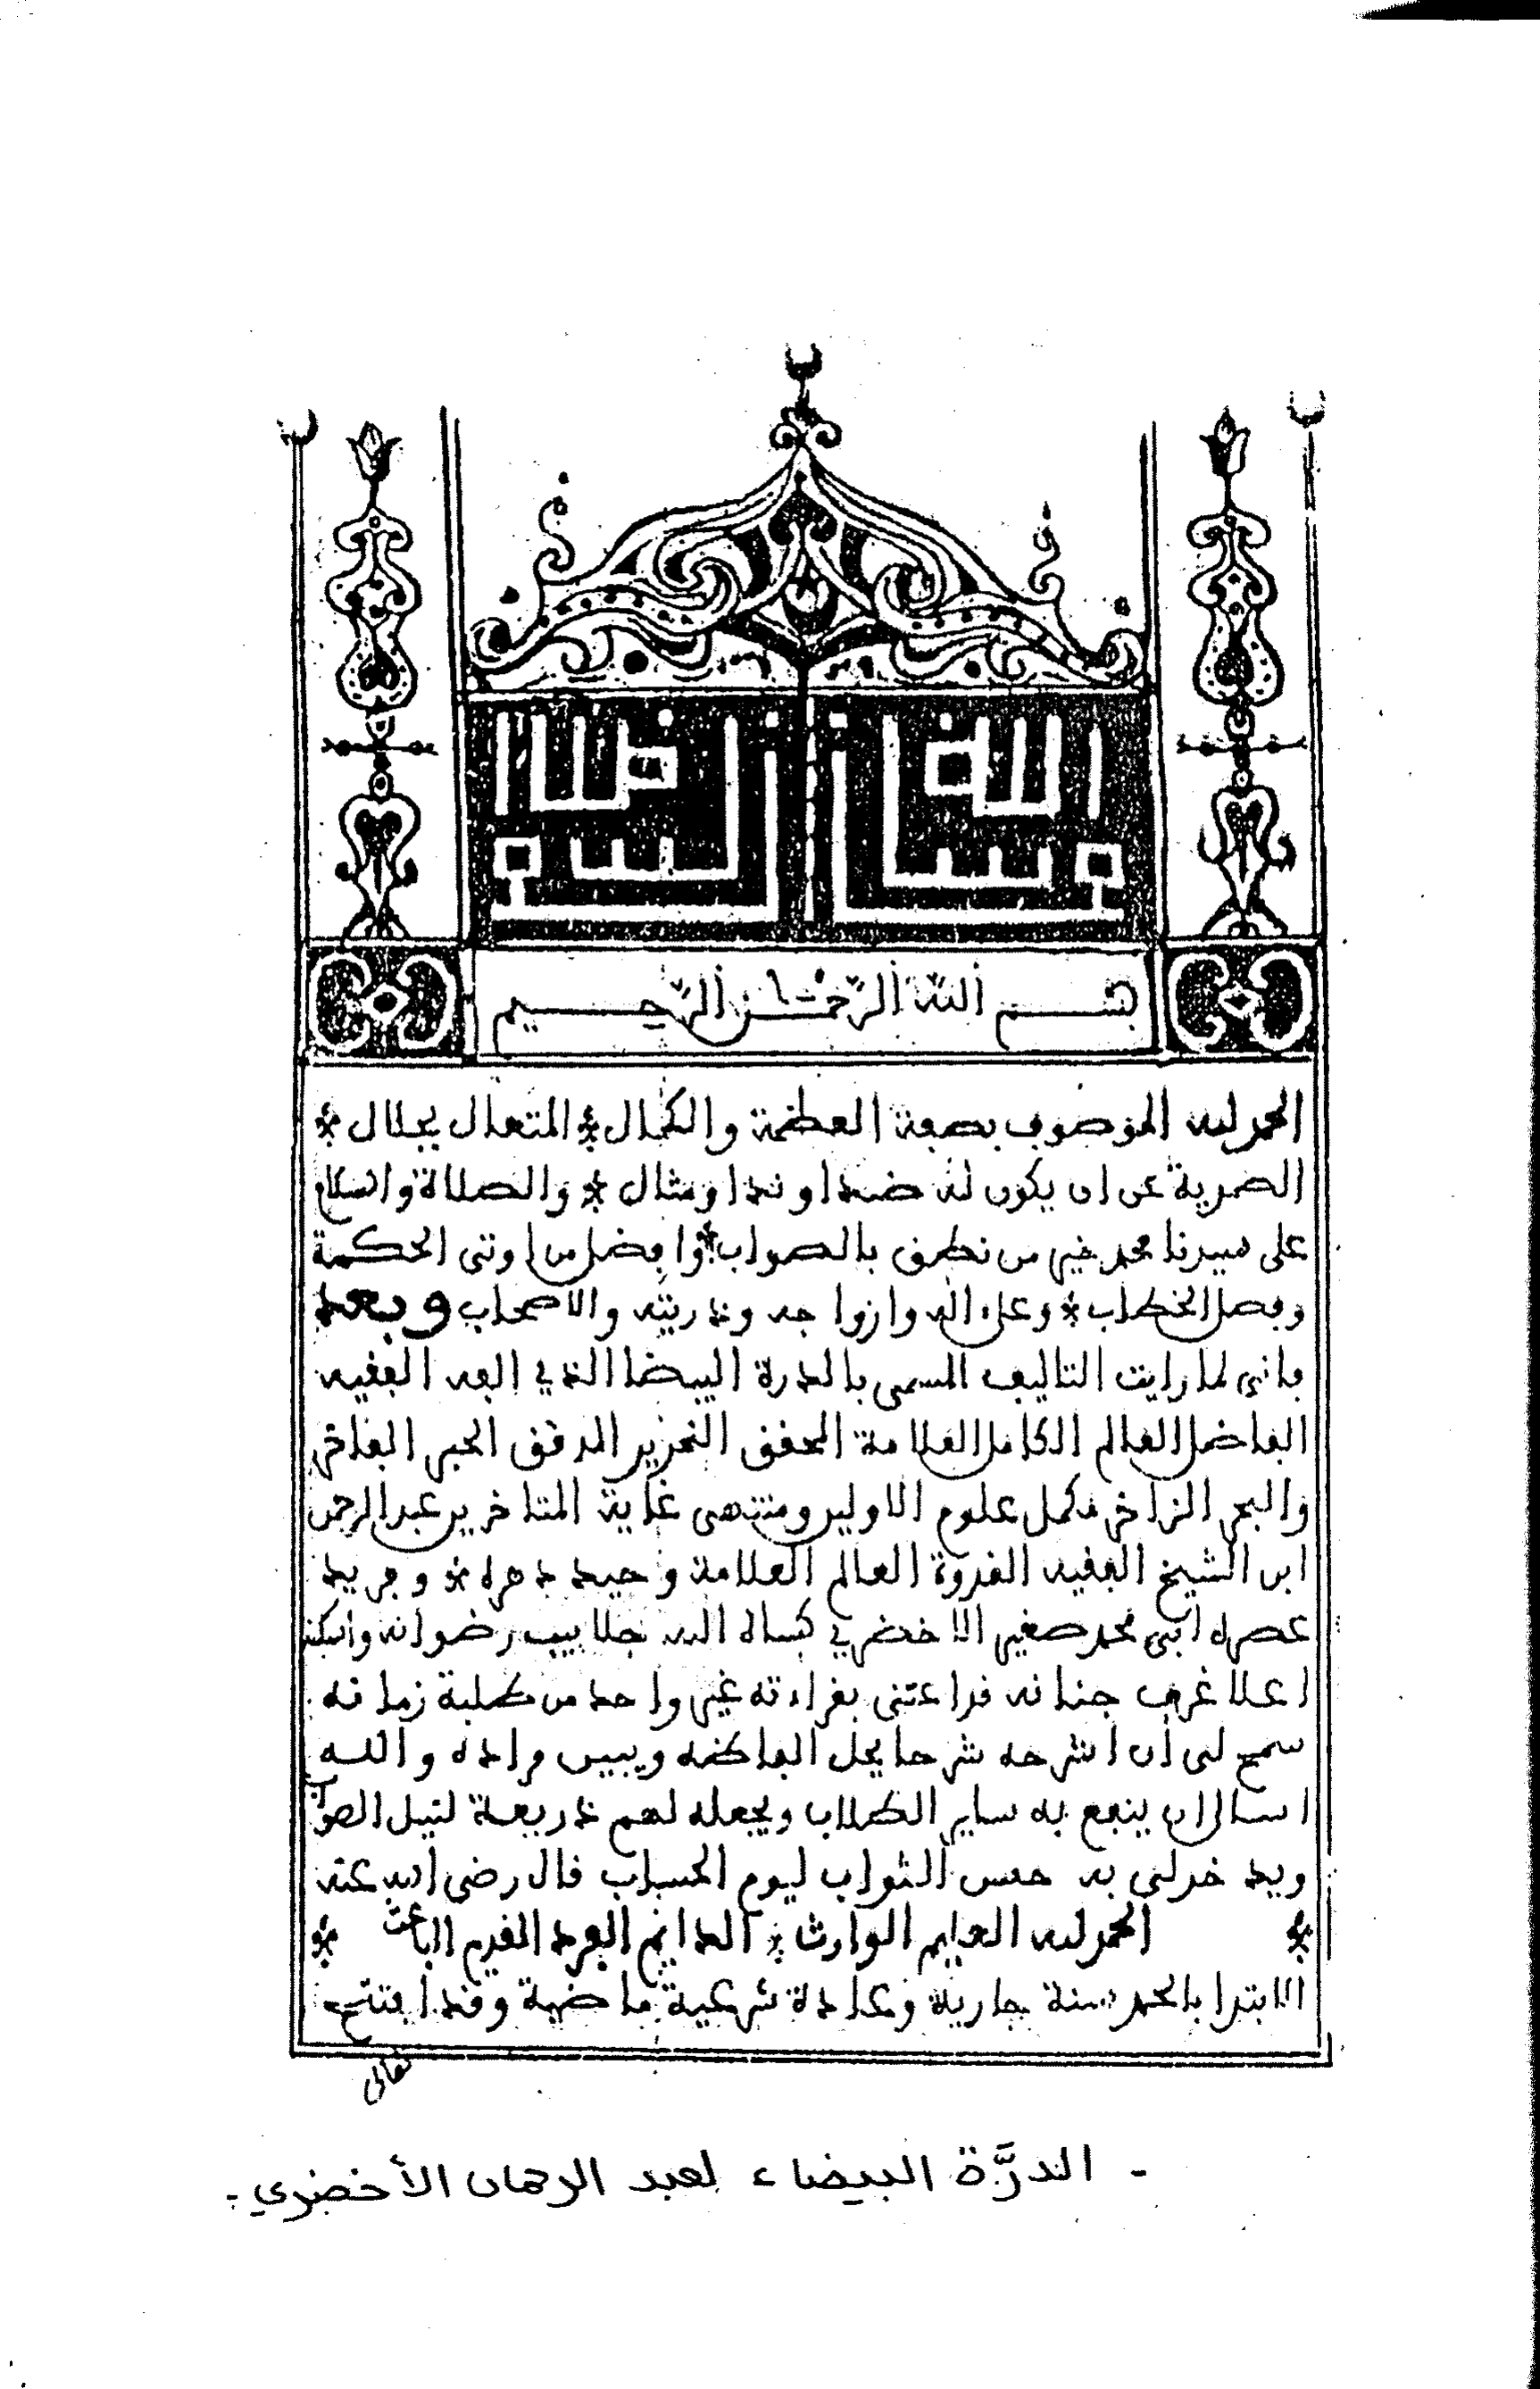 بسم الله الرحمن الرحيم
الحمد لله الموصوف بصفة العظمة والكمال * المتعال بجلال *
الصمدية عن ان يكون له ضدا وندا ومثال * والصلاة والسلام
على سيدنا محمد خير من نطق بالصواب * وافضل من اوتى الحكمة
وفصل الخطاب * وعلى اله وازواجه وذريته والاصحاب وبعد
فانى لما رايت التاليف المسمى بالدرة البيضا الذي الفه الفقيه
الفاضل العالم الكامل العلامة المحقق النحرير المدقق الحبر الفاخر
والبحر الزاخر مكمل علوم الاولين ومنتهى غاية المتاخرين عبد الرحمن
ابن الشيخ الفقيه القدوة العالم العلامة وحيد دهره * وفريد
عصره ابى محمد صغير الاخضري كساه الله جلابيب رضوانه واسكنه
اعلا غرف جنانه قد اعتنى بقراءته غير واحد من طلبة زمانه
سمح لى ان اشرحه شرحا يحل الفاظه ويبين مراده والله
اسال ان ينفع به ساير الطلاب ويجعله لهم ذريعة لنيل الصواب
ويدخر لى به حسن الثواب ليوم الحساب قال رضى الله عنه
* الحمد لله العليم الوارث * الدايم الفرد القديم الباعث *
الابتدا بالحمد سنة جارية وعادة شرعية ماضية وقد افتتح
تعالى
- الدرَّة البيضاء لعبد الرحمان الأخضري -